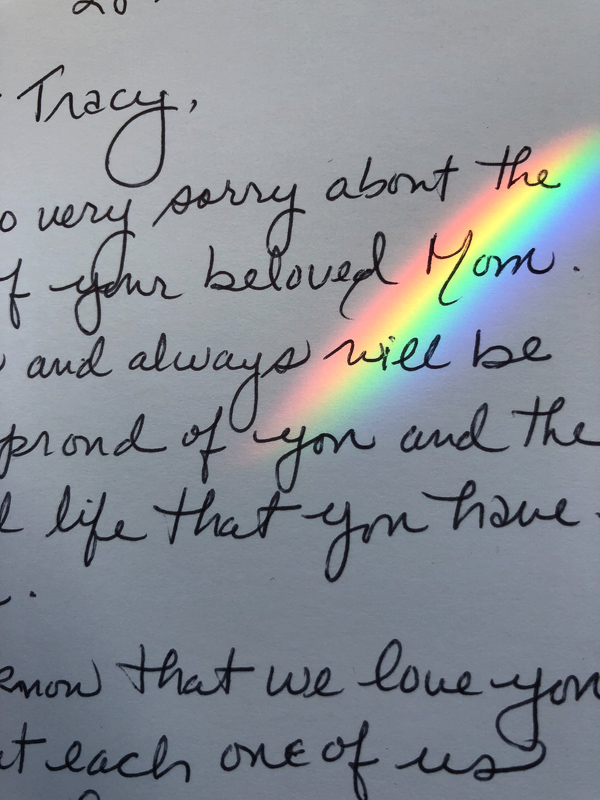 Tracy,
o very sorry about the
f your beloved Mom.
and always will be
proud of you and the
l life that you have
.
know that we love you
at each one of us